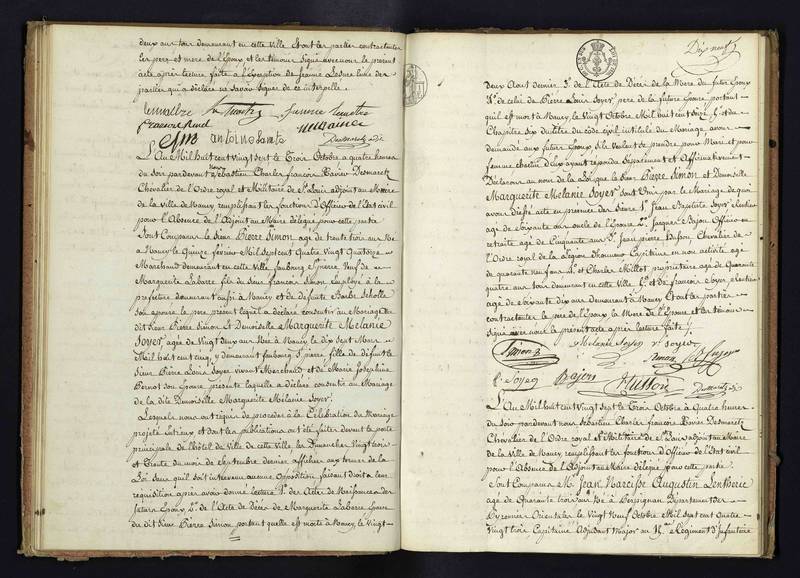 deux ans tous demeurant en cette Ville et ont les parties contractantes
les pere et mere de l'Epoux et les témoins signé avec nous le present
acte après lecture faite à l'Exception de Jeanne
parties qui a declaré ne savoir signer de ce interpellé
Lemaître
antoine Lamte
L'An Mil huit cent vingt sept le Trois Octobre a quatre heures
du soir pardevant nous Sébastien Charles françois Xavier Desmaretz
Chevalier de l'Ordre royal et Militaire de St. Louis adjoint au Maire
de la Ville de Nancy remplissant les fonctions d'Officier de l'Etat civil
pour l'Absence de l'Adjoint au Maire délégué pour cette partie
Sont Comparus le Sieur Pierre Simon, agé de trente trois ans Né
à Nancy le Quinze février Mil sept cent Quatre vingt Quatorze
Marchand demeurant en cette Ville faubourg St. pierre Veuf de
Marguerite Labarre fils de Sieur francois Simon Employé à la
préfecture demeurant aussi à Nancy et de défunte Barbe
son épouse le pere present lequel a déclaré consentir au Mariage
dit Sieur Pierre Simon et Demoiselle Marguerite Mélanie
Soyer agée de Vingt deux ans Née à Nancy le dix sept Mars
Mil huit cent cinq, y demeurant faubourg St. pierre, fille de défunt le
Sieur Pierre Louis Soyer vivant Marchand et de Marie Josephine
Pernot son Epouse presente laquelle a déclaré consentir au Mariage
de la dite Demoiselle Marguerite Mélanie Soyer
Lesquels nous ont requis de procéder à la Célébration du Mariage
projetté entr'eux et dont les publications ont été faites devant la porte
principale de l'hôtel de Ville de cette Ville, les Dimanches Vingt trois
et Trente du mois de Septembre dernier affichées aux termes de la
Loi sans qu'il soit intervenu aucune Opposition faisant droit a leur
réquisition après avoir donné lecture 1°. des Actes de Naissance des
futurs Epoux 2°. de l'Acte de Décès de Marguerite Labarre Epouse
du dit Sieur Pierre Simon, portant qu'elle est morte à Nancy, le Vingt
deux Aout dernier 3°. de l'Acte de Décès de la Mere du futur Epoux
4°. de celui de Pierre Louis Soyer pere de la future Epouse portant
qu'il est mort à Nancy, le Vingt Octobre Mil huit cent douze 5°. et du
Chapitre six du titre du code civil intitulé du Mariage, avons
demandé aux futurs Epoux s'ils Veulent se prendre pour Mari et pour
femme chacun d'eux ayant répondu Séparément et Affirmativement
Déclarons au nom de la Loi que le Sieur Pierre Simon et Demoiselle
Marguerite Mélanie Soyer sont Unis par le Mariage de quoi
avons dressé acte en presence des Sieurs 1°. Jean Baptiste Soyer
agé de Soixante ans oncle de l'Epouse 2°. Jacques Bajon Officier en
retraite agé de Cinquante ans 3°. Jean pierre Husson, Chevalier de
l'Ordre royal de la Légion d'honneur Capitaine en non activité agé
de quarante neuf ans 4. et Charles Millot, propriétaire agé de Quarante
quatre ans tous demeurant en cette Ville
agé de Soixante dix ans demeurant à Nancy et ont les parties
contractantes le pere de l'Epoux la Mere de l'Epouse et les témoins
signé avec nous le present acte après lecture faite
Simon Melanie Soyer Ve. Soyer
Soyer Bajon Husson Desmaretz
L'An Mil huit cent Vingt sept le Trois Octobre a Quatre heures
du soir pardevant nous Sébastien Charles François Xavier Desmaretz
Chevalier de l'Ordre royal et Militaire de St. Louis adjoint au Maire
de la Ville de Nancy remplissant les fonctions d'Officier de l'Etat civil
pour l'Absence de l'Adjoint au Maire délégué pour cette partie
Sont Comparus Mr. Jean Narcisse Augustin Lentherie
agé de Quarante trois ans Né à Perpignan Département des
Pyrennées Orientales le Vingt Neuf Octobre Mil sept cent Quatre
Vingt trois Capitaine Adjudant Major au Régiment d'Infanterie